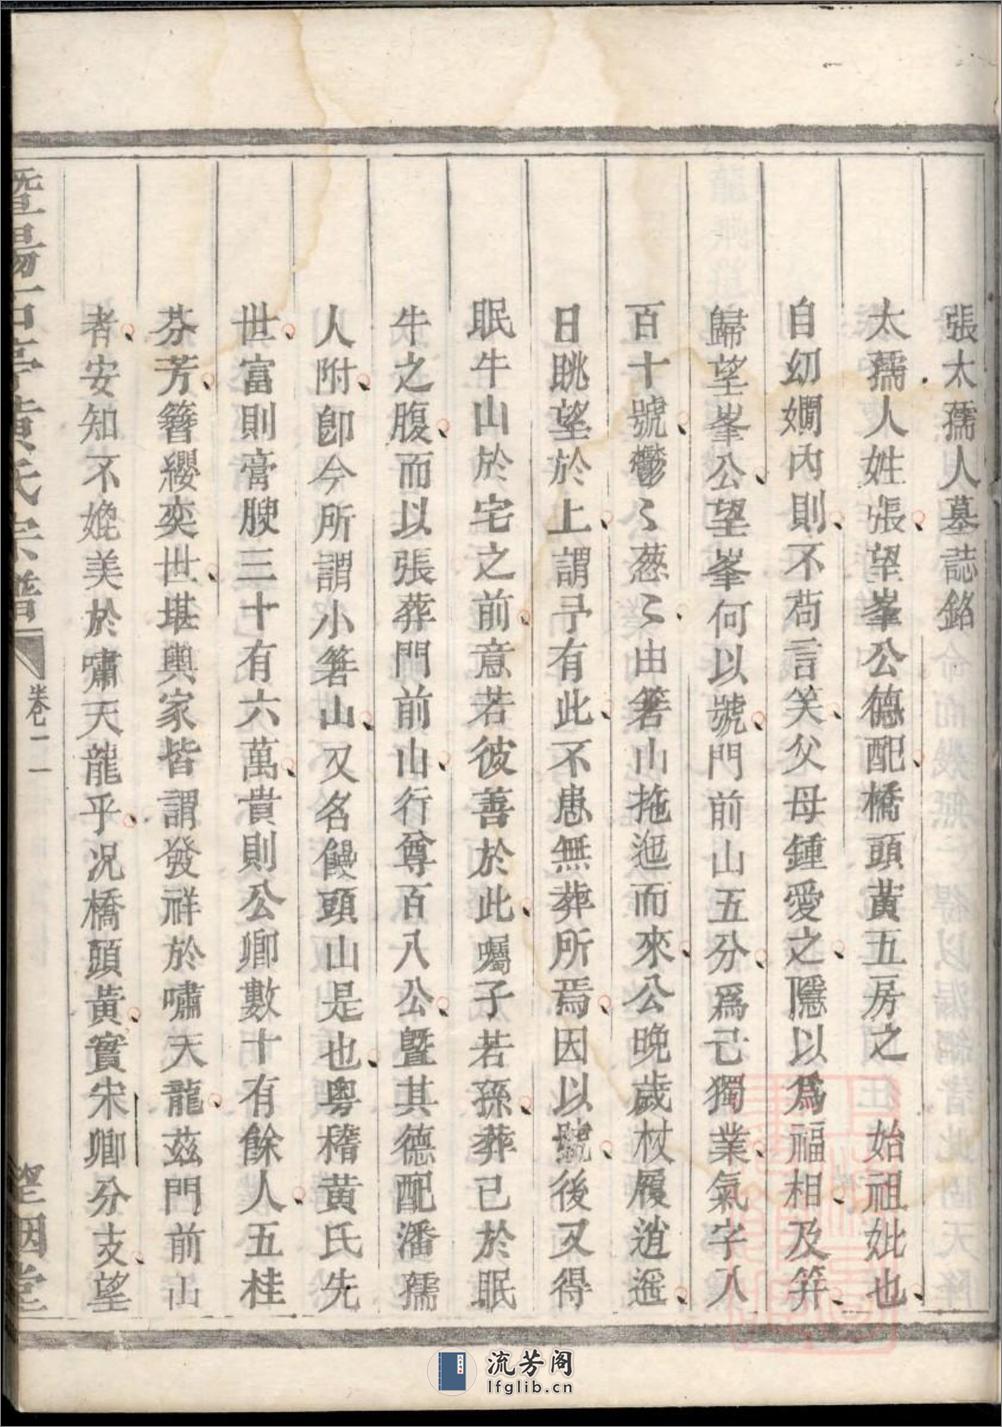 張太孺人墓誌銘
太孺人姓張望峯公德配橋頭黃五房之 始祖妣也
自幼嫺內則不苟言笑父母鍾愛之隱以爲福相及笄
歸望峯公望峯何以號門前山五分爲己獨業氣字入
百十號鬱〻葱〻由箬山拖迤而來公晚歲杖履逍遥
日眺望於上謂予有此不患無葬所焉因以號後又得
眠牛山於宅之前意若彼善於此囑子若孫葬已於眠
牛之腹而以張葬門前山行尊百八公曁其德配潘孺
人附卽今所謂小箬山又名饅頭山是也粵稽黃氏先
世富則膏腴三十有六萬貴則公卿數十有餘人五桂
芬芳簪纓奕世堪輿家皆謂發祥於嘯天龍茲門前山
者安知不媲美於嘯天龍乎况橋頭黃實宋卿分支望
暨陽古亭黃氏宗譜
卷二 一
望烟堂
流芳阁
lfglib.cn